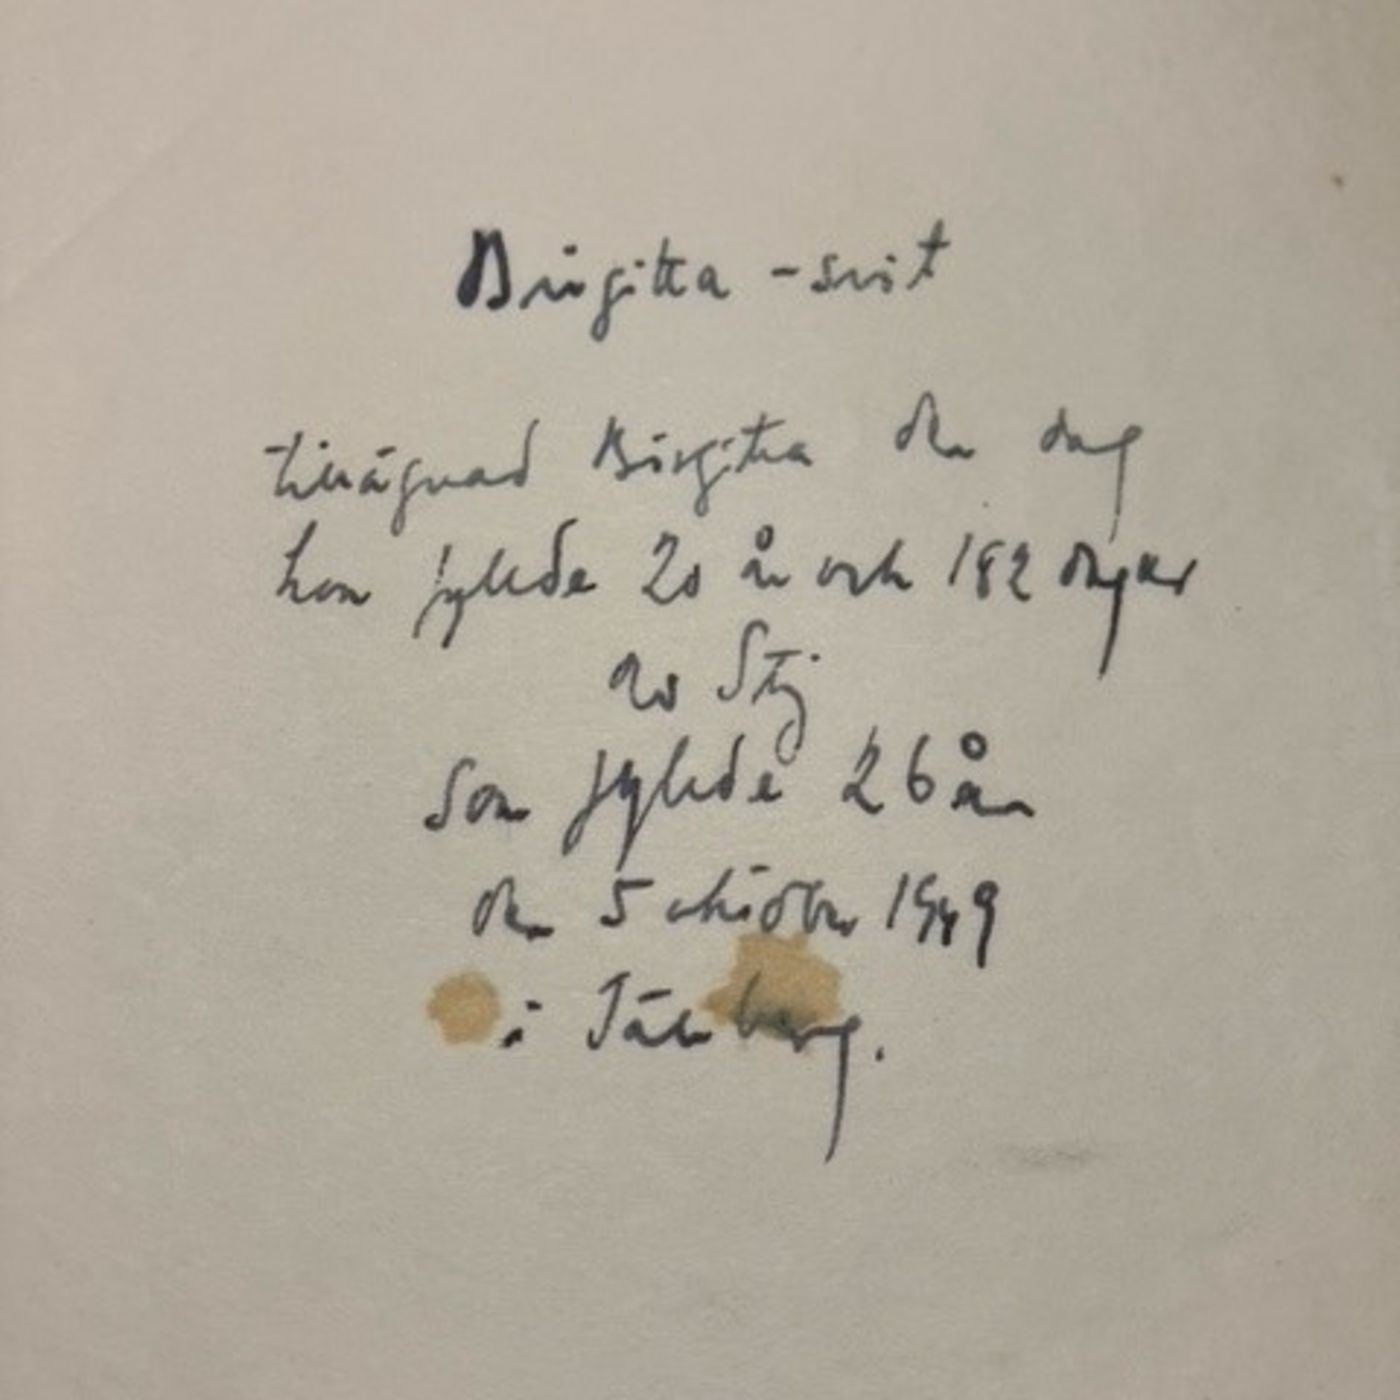 Birgitta - svit
tillägnad Birgitta den dag
hon fyllde 20 år och 182 dagar
av Stig
som fyllde 26 år
den 5 oktober 1949
i Tällberg.